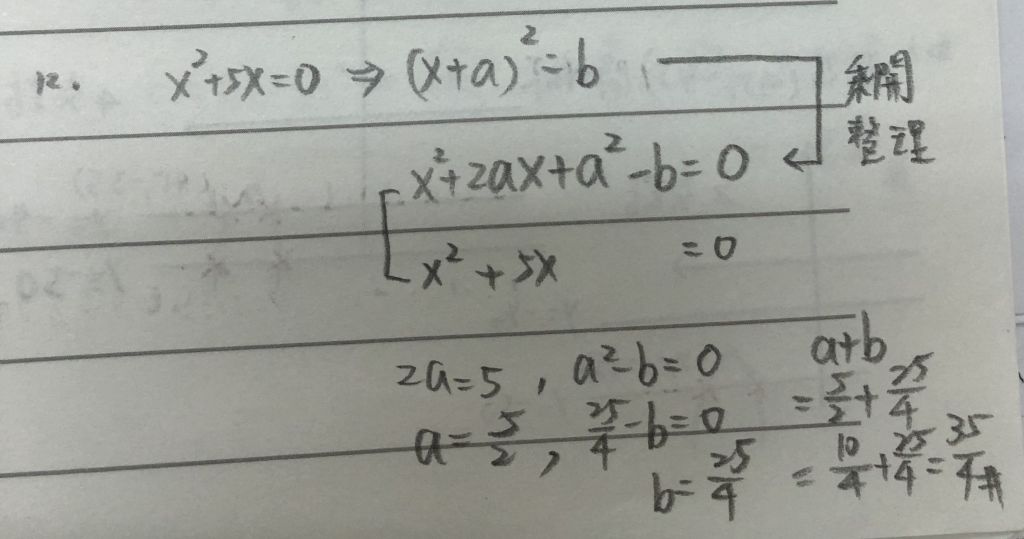 12. x²+5x=0 ⇒ (x+a)²=b
乘開
整理
x²+2ax+a²-b=0
x²+5x =0
2a=5, a²-b=0
a=5/2, 25/4-b=0
b=25/4
a+b
=5/2+25/4
=10/4+25/4=35/4#